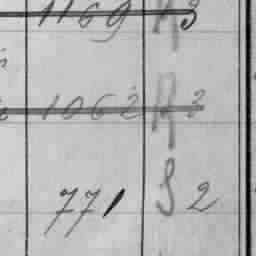 1169 R 3
1062 R 3
771 S 2